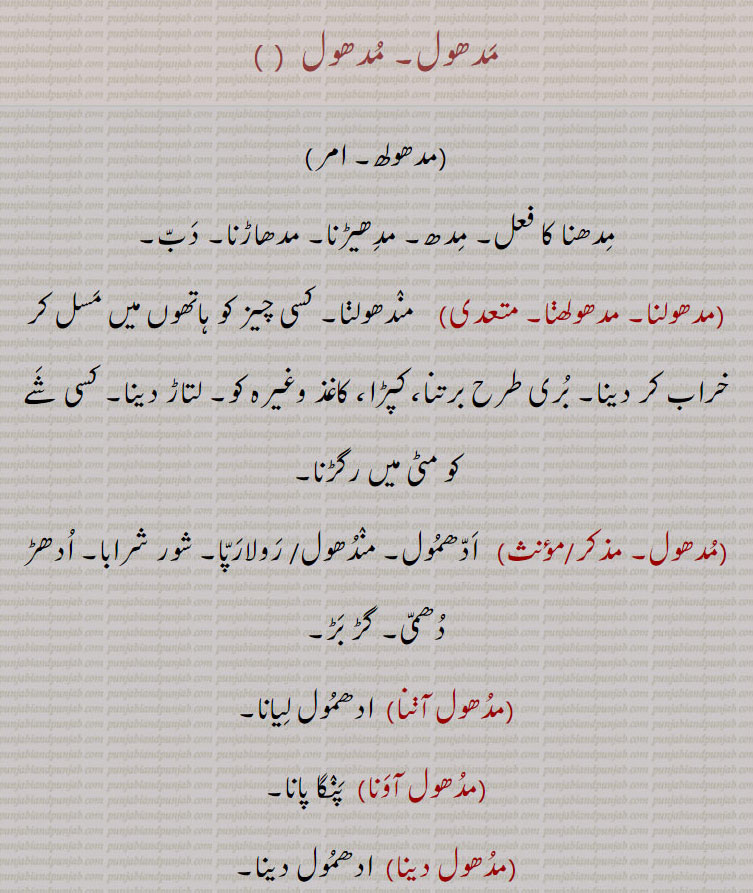 مَدھول۔ مُدھول ( )
(مدھولھ۔ امر)
مِدھنا کا فعل۔ مِدھ۔ مدِھیڑنا۔ مدھاڑنا۔ دَبّ۔
(مدھولنا۔ مدھولھݨا۔ متعدی) منْدھولݨا۔ کسی چیز کو ہاتھوں میں مَسل کر
خراب کر دینا۔ بُری طرح برتنا، کپڑا، کاغذ وغیرہ کو۔ لتاڑ دینا۔ کسی شَے
کو مٹی میں رگڑنا۔
(مُدھول۔ مذکر/مؤنث) اَدّھمُول۔ منْدُھول/ رَولا رَپّا۔ شور شرابا۔ اُدھڑ
دُھمّی۔ گڑبَڑ۔
(مدُھول آݨنا) ادھمُول لِیانا۔
(مدُھول آوَنا) پَنْگا پانا۔
(مدُھول دینا) ادھمُول دینا۔